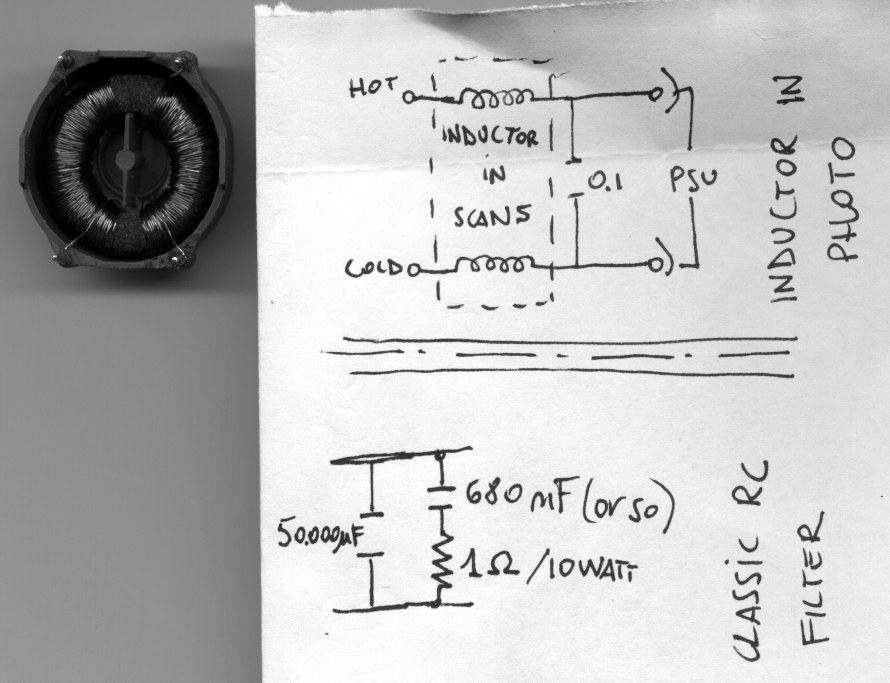 HOT
INDUCTOR
IN
SCANS
0.1
PSU
COLD
INDUCTOR IN
PHOTO
50.000µF
680 nF (or so)
1Ω /10WATT
CLASSIC RC
FILTER